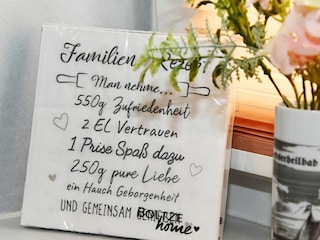 Familien Rezept
Man nehme...
550g Zufriedenheit
2 EL Vertrauen
1 Prise Spaß dazu
250g pure Liebe
ein Hauch Geborgenheit
UND GEMEINSAM
BOLTZE
home